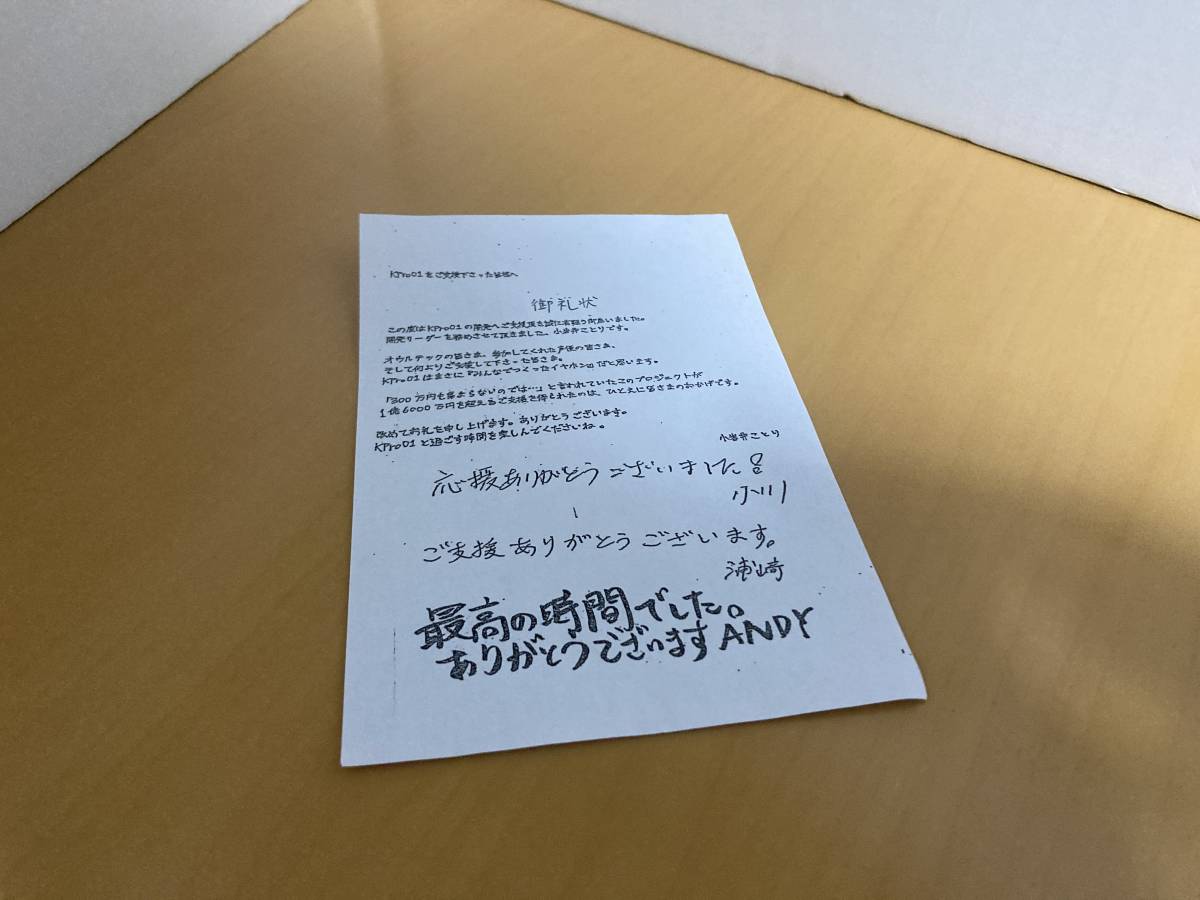 KPro01をご支援下さった皆様へ
御礼状
この度はKPro01の開発へご支援頂き誠に有難う御座いました。
開発リーダーを務めさせて頂きました、小岩井ことりです。
オウルテックの皆さま、参加してくれた声優の皆さま、
そして何よりご支援して下さった皆さま。
KPro01はまさに『みんなでつくったイヤホン』だと思います。
「300万円も集まらないのでは…」と言われていたこのプロジェクトが
1億6000万円を超えるご支援を得られたのは、ひとえに皆さまのおかげです。
改めてお礼を申し上げます。ありがとうございます。
KPro01と過ごす時間を楽しんでくださいね。
小岩井ことり
応援ありがとうございました
小川
ご支援ありがとうございます。
浦崎
最高の時間でした。
ありがとうございます ANDY